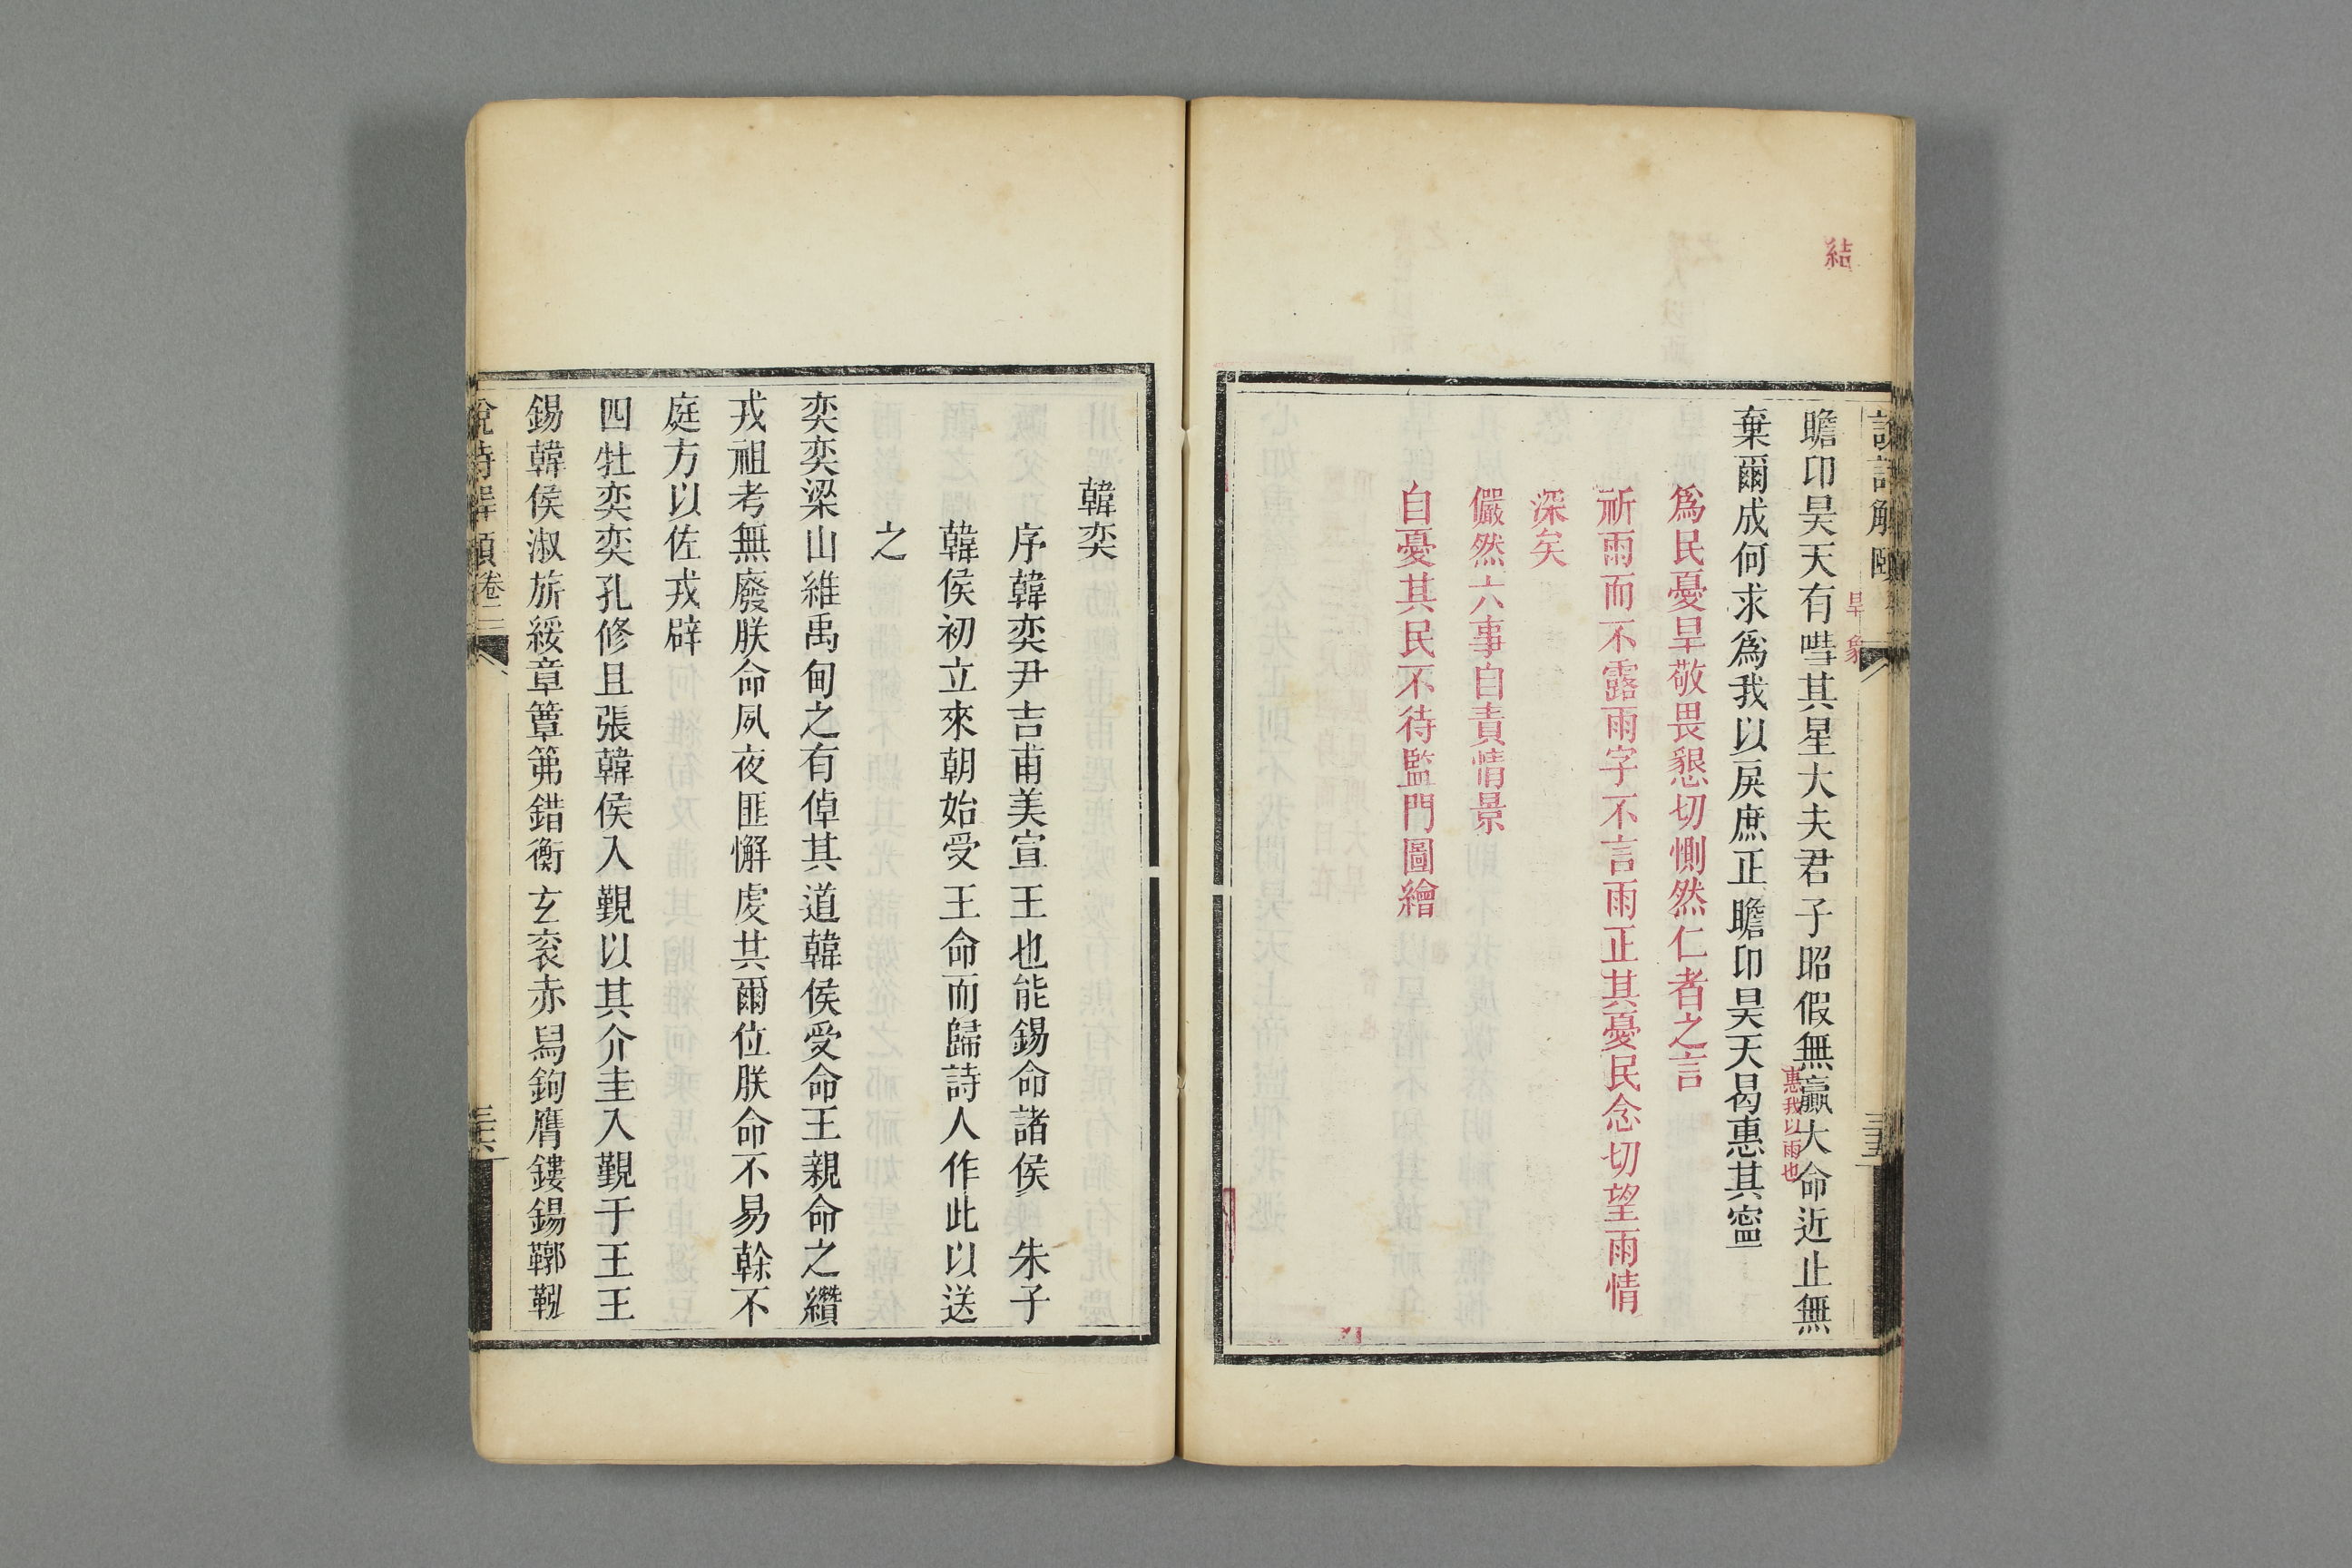 結
說詩解頤
旱象
瞻卬昊天有嘒其星大夫君子昭假無贏大命近止無
惠我以雨也
棄爾成何求爲我以戾庶正瞻卬昊天曷惠其寍
爲民憂旱敬畏懇切惻然仁者之言
祈雨而不露雨字不言雨正其憂民念切望雨情
深矣
儼然六事自責情景
自憂其民不待監門圖繪
三十五
韓奕
序韓奕尹吉甫美宣王也能錫命諸侯 朱子
韓侯初立來朝始受王命而歸詩人作此以送
之
奕奕梁山維禹甸之有倬其道韓侯受命王親命之纘
戎祖考無廢朕命夙夜匪懈虔共爾位朕命不易榦不
庭方以佐戎辟
四牡奕奕孔修且張韓侯入覲以其介圭入覲于王王
錫韓侯淑旂綏章簟茀錯衡玄衮赤舄鉤膺鏤鍚鞹鞃
說詩解頤 卷二
三十六